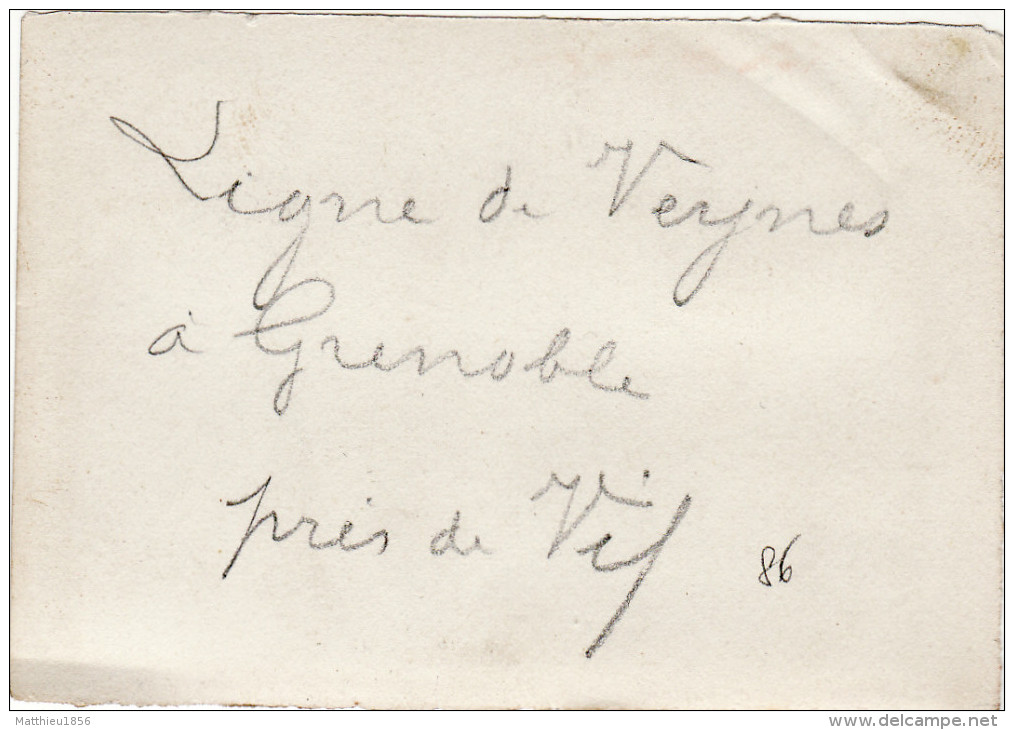 Ligne de Veynes
à Grenoble
près de Vif 86
Matthieu1856
www.delcampe.net